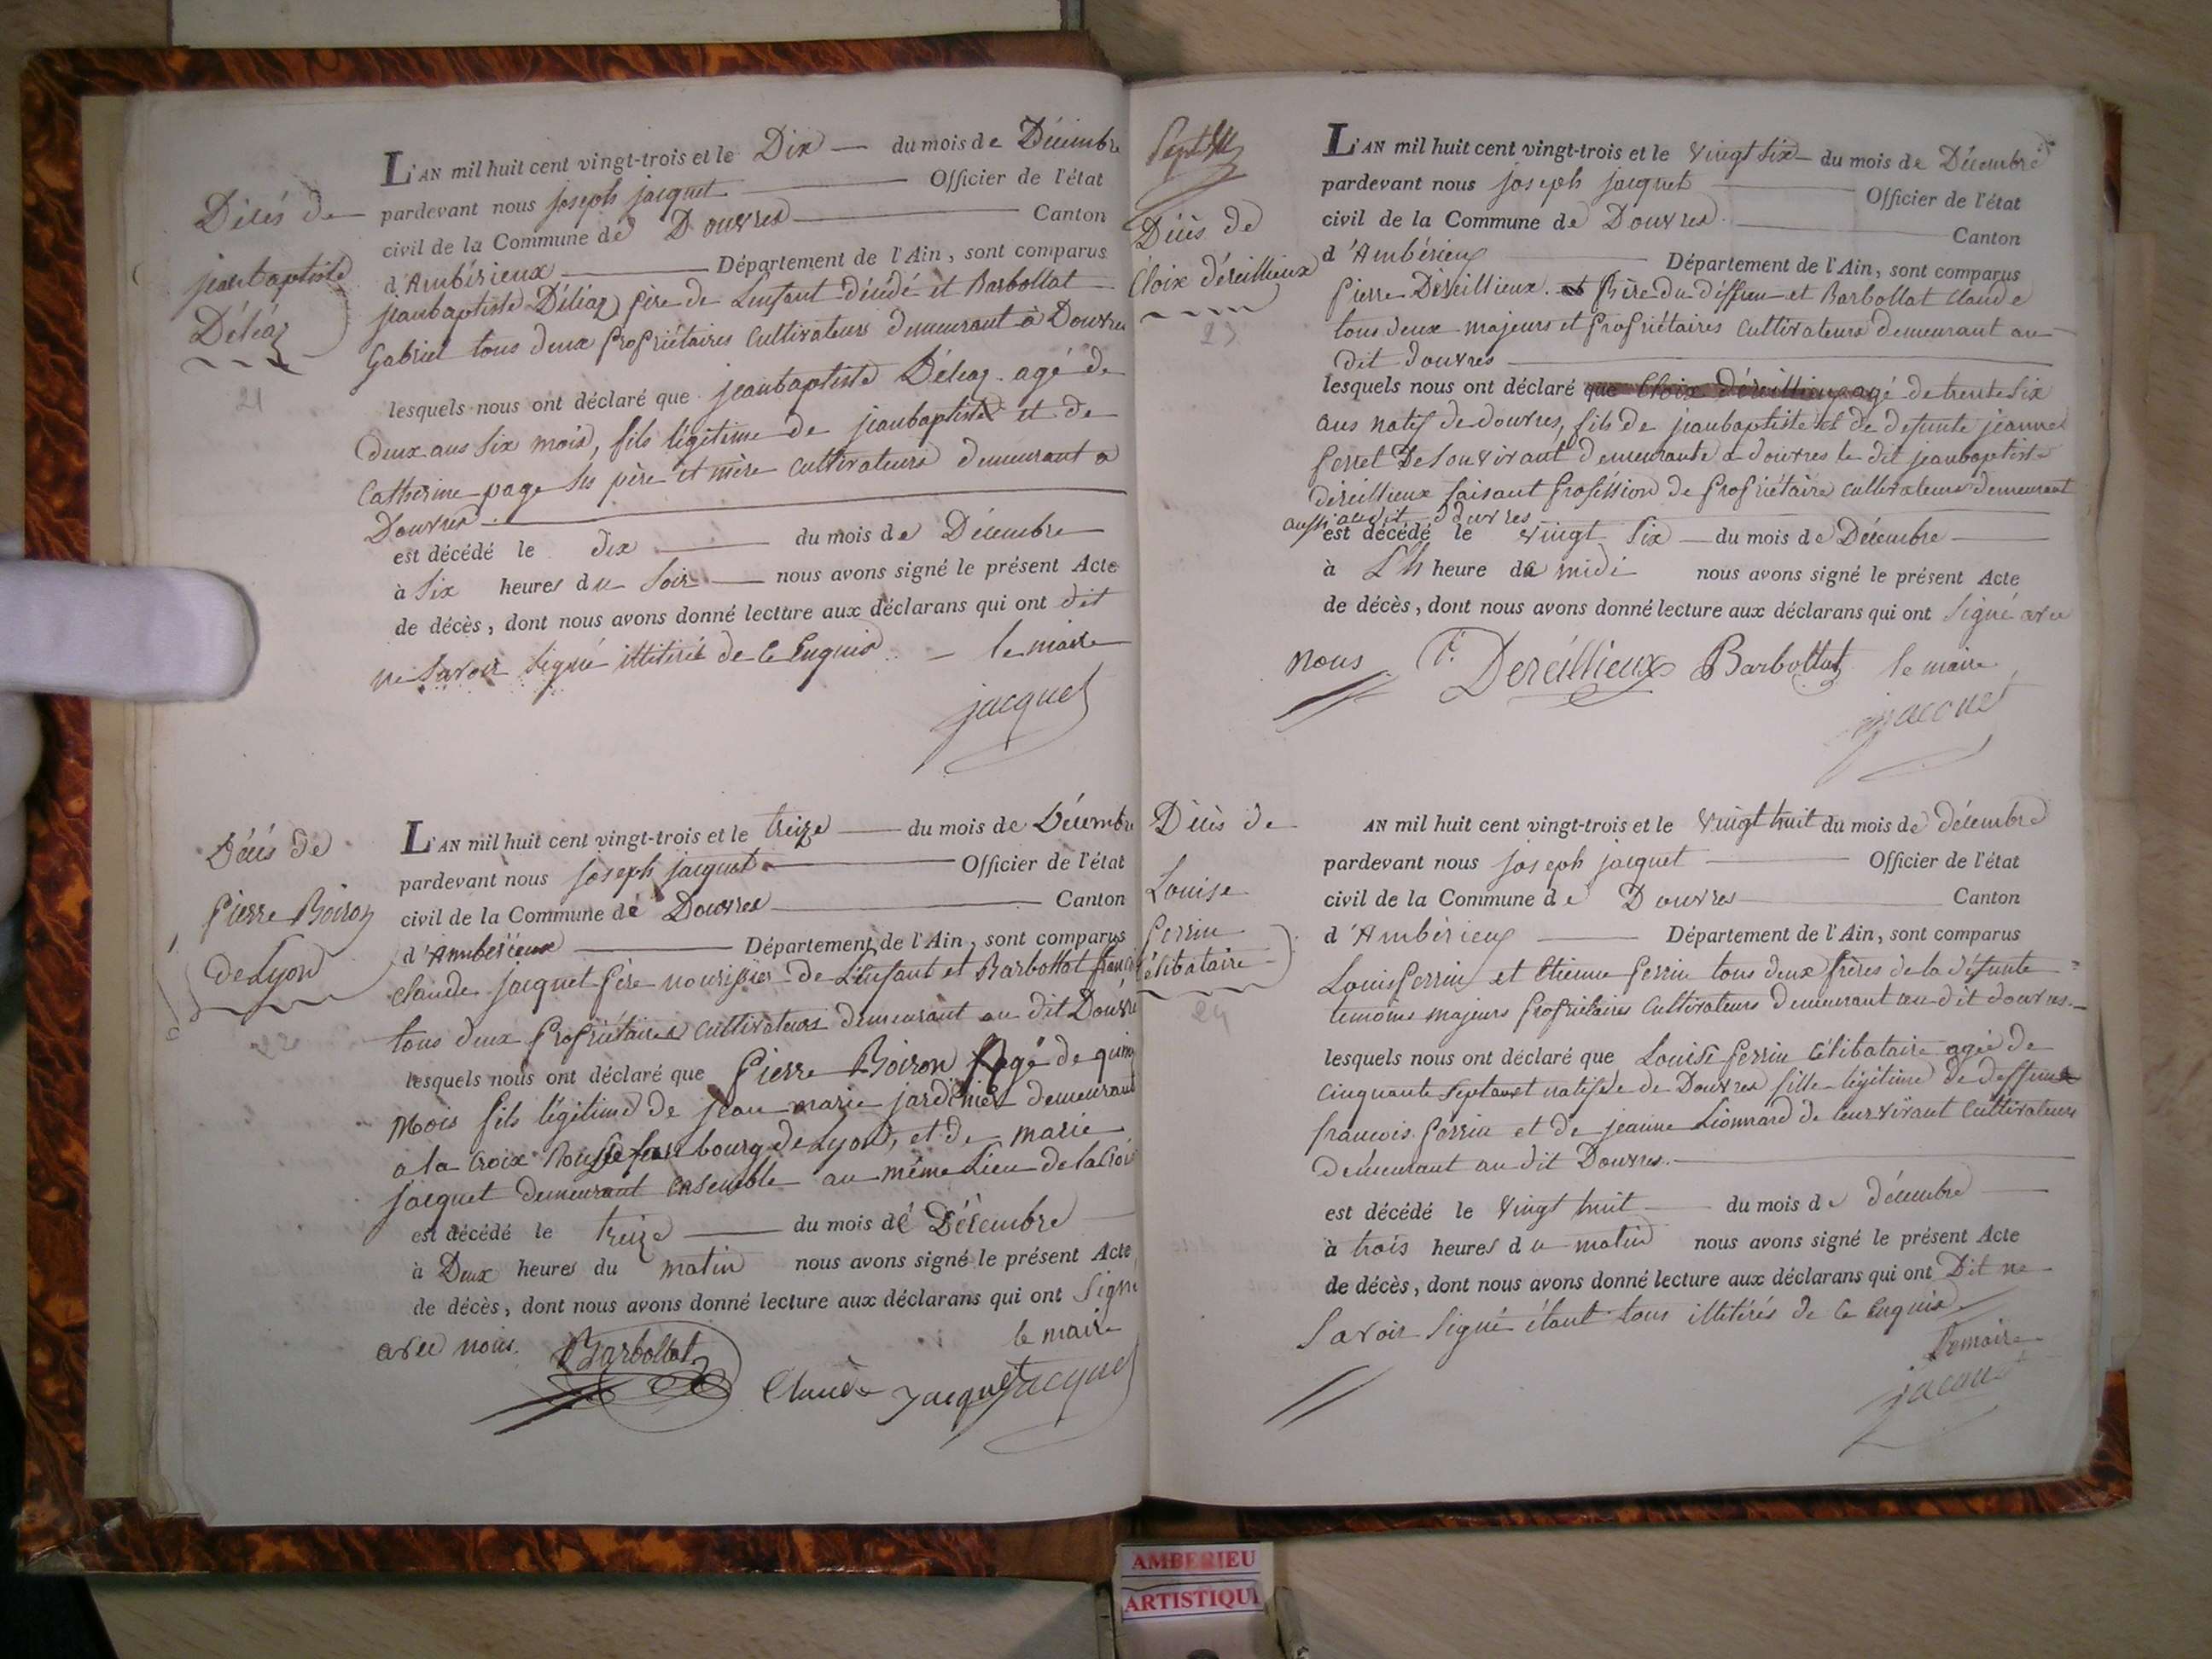 Décés de
jeanbaptiste
Déléaz
21
L'AN mil huit cent vingt-trois et le Dix du mois de Décembre
pardevant nous joseph jacquet Officier de l'état
civil de la Commune de Douvres Canton
d'Ambérieux Département de l'Ain, sont comparus
jeanbaptiste Déléaz père de Lenfant décédé et Barbollat
Gabriel tous deux propriétaires cultivateurs demeurant à Douvres
lesquels nous ont déclaré que jeanbaptiste Déléaz agé de
deux ans six mois, fils légitime de jeanbaptiste et de
Catherine page ses père et mère cultivateurs demeurant a
Douvres
est décédé le dix du mois de Décembre
à Six heures du Soir nous avons signé le présent Acte
de décès, dont nous avons donné lecture aux déclarans qui ont dit
ne savoir signé illitéré de ce Enquis le maire
jacquet
Décés de
Pierre Boiron
de Lyon
22
L'AN mil huit cent vingt-trois et le treize du mois de Décembre
pardevant nous joseph jacquet Officier de l'état
civil de la Commune de Douvres Canton
d'Ambérieux Département de l'Ain, sont comparus
Claude jacquet père nourissier de L'Enfant et Barbollat
tous deux propriétaires cultivateurs demeurant au dit Douvres
lesquels nous ont déclaré que Pierre Boiron Agé de
mois fils légitime de jean marie jardinier demeurant
a la Croix Rousse faubourg de Lyon, et de marie
jacquet demeurant ensemble au même Lieu de la Croix
est décédé le treize du mois de Décembre
à Deux heures du matin nous avons signé le présent Acte
de décès, dont nous avons donné lecture aux déclarans qui ont Signé
avec nous. Barbollat le maire
Claude jacquet jacquet
Décès de
Cloix déreillieux
23
L'AN mil huit cent vingt-trois et le vingt six du mois de Décembre
pardevant nous joseph jacquet Officier de l'état
civil de la Commune de Douvres Canton
d'Ambérieux Département de l'Ain, sont comparus
Pierre Déreillieux frère du deffun et Barbollat Claude
tous deux majeurs et propriétaires cultivateurs demeurant au
dit douvres
lesquels nous ont déclaré que Cloix déreillieux agé de trente six
ans natif de douvres, fils de jeanbaptiste et de defunte jeanne
perret De Son vivant demeurante a douvres le dit jeanbaptiste
déreillieux faisant profession de propriétaire cultivateur demeurant
aussi audit douvres
est décédé le vingt six du mois de Décembre
à heure de midi nous avons signé le présent Acte
de décès, dont nous avons donné lecture aux déclarans qui ont Signé avec
nous P. Dereillieux Barbollat le maire
jacquet
Décès de
Louise
Perrin
Célibataire
24
AN mil huit cent vingt-trois et le vingt huit du mois de décembre
pardevant nous joseph jacquet Officier de l'état
civil de la Commune de Douvres Canton
d'Ambérieux Département de l'Ain, sont comparus
Louis Perrin et Etienne Perrin tous deux frères de la défunte
temoins majeurs propriétaires cultivateurs demeurant au dit douvres.
lesquels nous ont déclaré que Louise Perrin Célibataire agée de
cinquante Sept natife de Douvres fille légitime de deffunt
francois Perrin et de jeanne Lionnard de leur vivant cultivateurs
demeurant au dit Douvres.
est décédé le vingt huit du mois de décembre
à trois heures du matin nous avons signé le présent Acte
de décès, dont nous avons donné lecture aux déclarans qui ont Dit ne
Savoir Signé étant tous illitérés de ce Enquis.
Lemaire
jacquet
AMBERIEU
ARTISTIQU